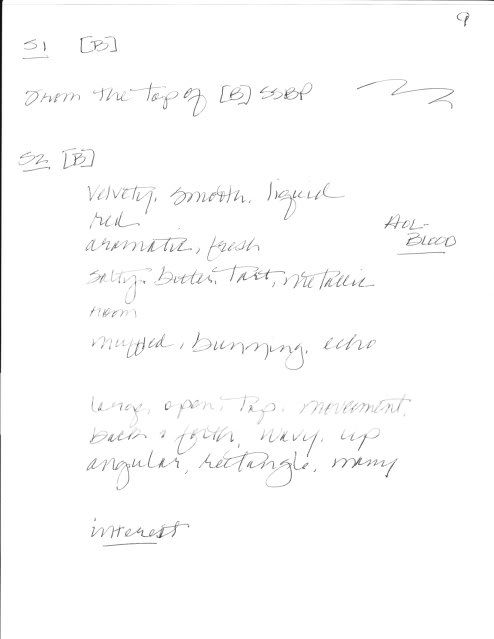 9
S1 [B]
From the top of [B] SSBP
S2 [B]
Velvety, smooth, liquid
red
AOL-
aromatic, fresh
BLOOD
salty, bitter, tart, metallic
warm
muffled, humming, echo
large, open, top, movement,
back & forth, wavy, up
angular, rectangle, many
interest